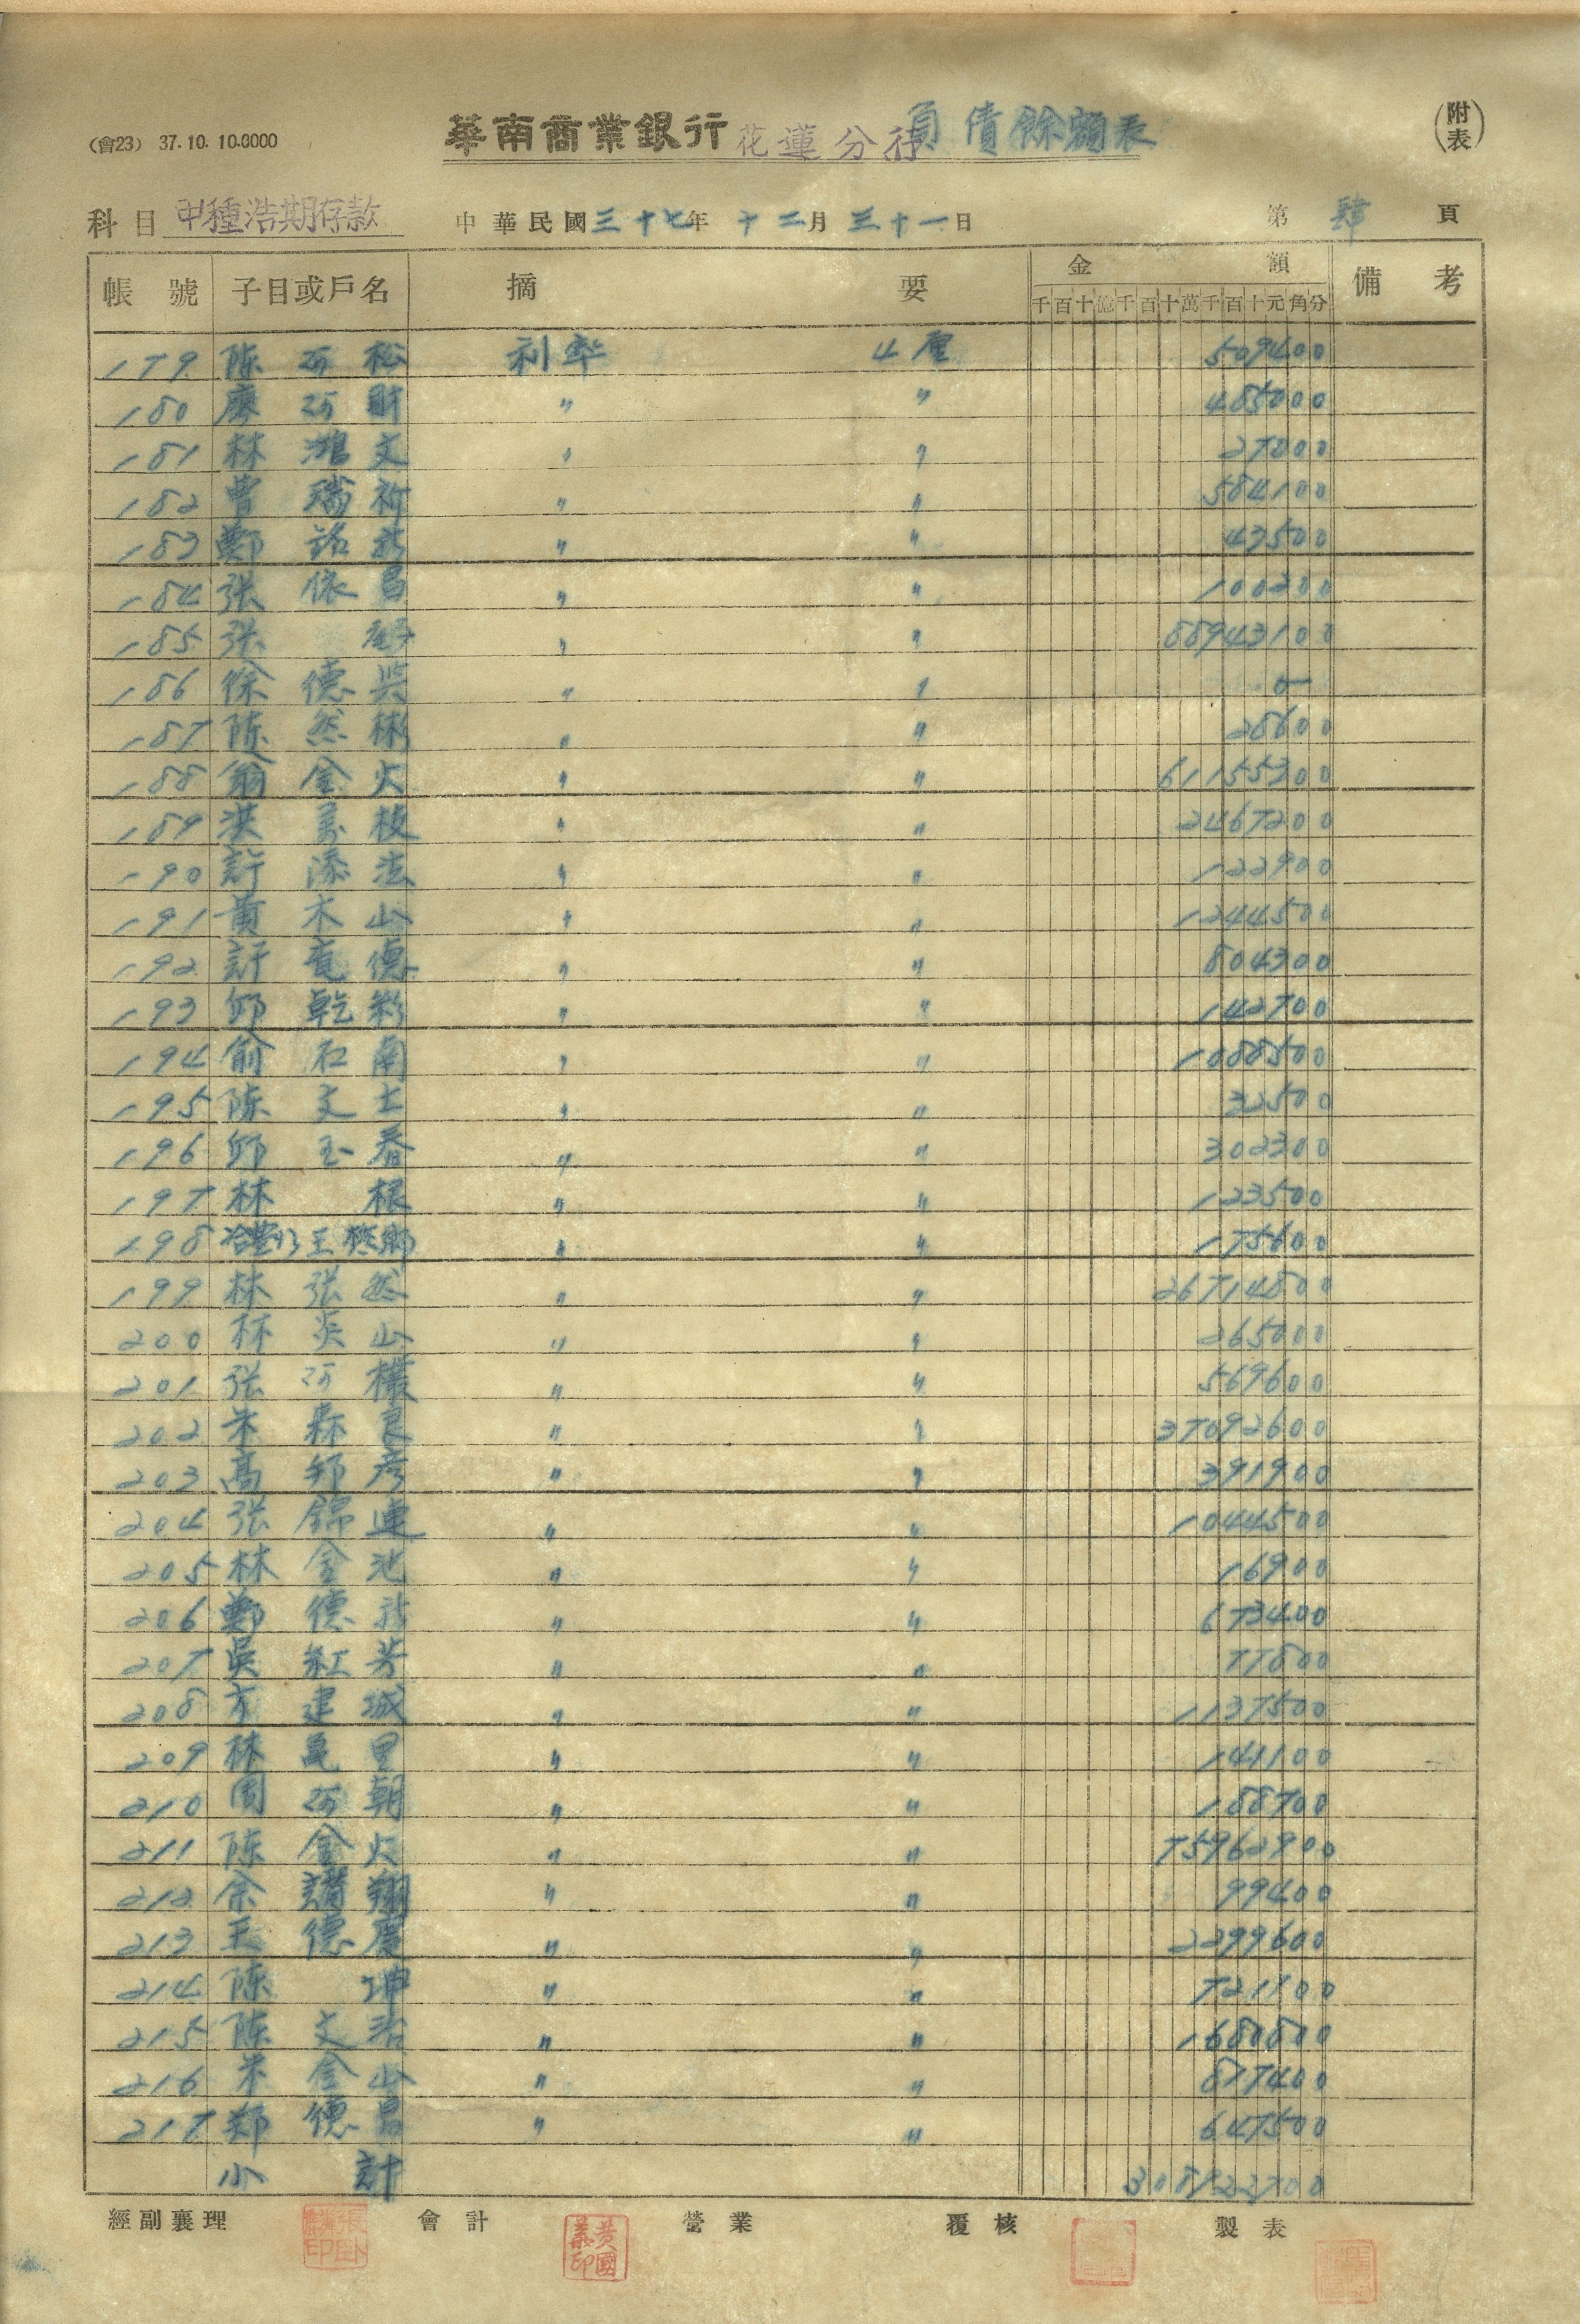 (會23) 37.10.10.0000 華南商業銀行 花蓮分行 負債餘額表 (附表)
科目 甲種活期存款 中華民國三十七年十二月三十一日 第肆頁
帳號 子目或戶名 摘要 金額 備考
千百十億千百十萬千百十元角分
179 陳阿松 利率 4厘 509400
180 廖阿財 〃 〃 485000
181 林鴻文 〃 〃 27000
182 曾瑞祈 〃 〃 584100
183 鄭 〃 〃 43500
184 張依昌 〃 〃 100200
185 張 〃 〃 88943100
186 徐德 〃 〃 0
187 陳然彬 〃 〃 28600
188 翁金火 〃 〃 61155300
189 洪萬枝 〃 〃 2467200
190 許添法 〃 〃 122900
191 黃木山 〃 〃 1244500
192 許德 〃 〃 804300
193 邱乾彩 〃 〃 142700
194 俞石南 〃 〃 1088500
195 陳文士 〃 〃 32500
196 邱玉春 〃 〃 302300
197 林根 〃 〃 123500
198 王 〃 〃 175600
199 林張然 〃 〃 26714800
200 林炎山 〃 〃 265000
201 張阿 〃 〃 569600
202 朱森良 〃 〃 37092600
203 高彥 〃 〃 391900
204 張錦連 〃 〃 1044500
205 林金池 〃 〃 16900
206 鄭德 〃 〃 673400
207 吳紅芳 〃 〃 77800
208 方建城 〃 〃 1137500
209 林里 〃 〃 141100
210 周阿朝 〃 〃 188700
211 陳金火 〃 〃 75962900
212 余翔 〃 〃 99400
213 王德慶 〃 〃 2299600
214 陳坤 〃 〃 721100
215 陳文治 〃 〃 1680800
216 朱金山 〃 〃 877400
217 鄭德昌 〃 〃 647500
小計 308122700
經副襄理 會計 營業 覆核 製表
黃國印